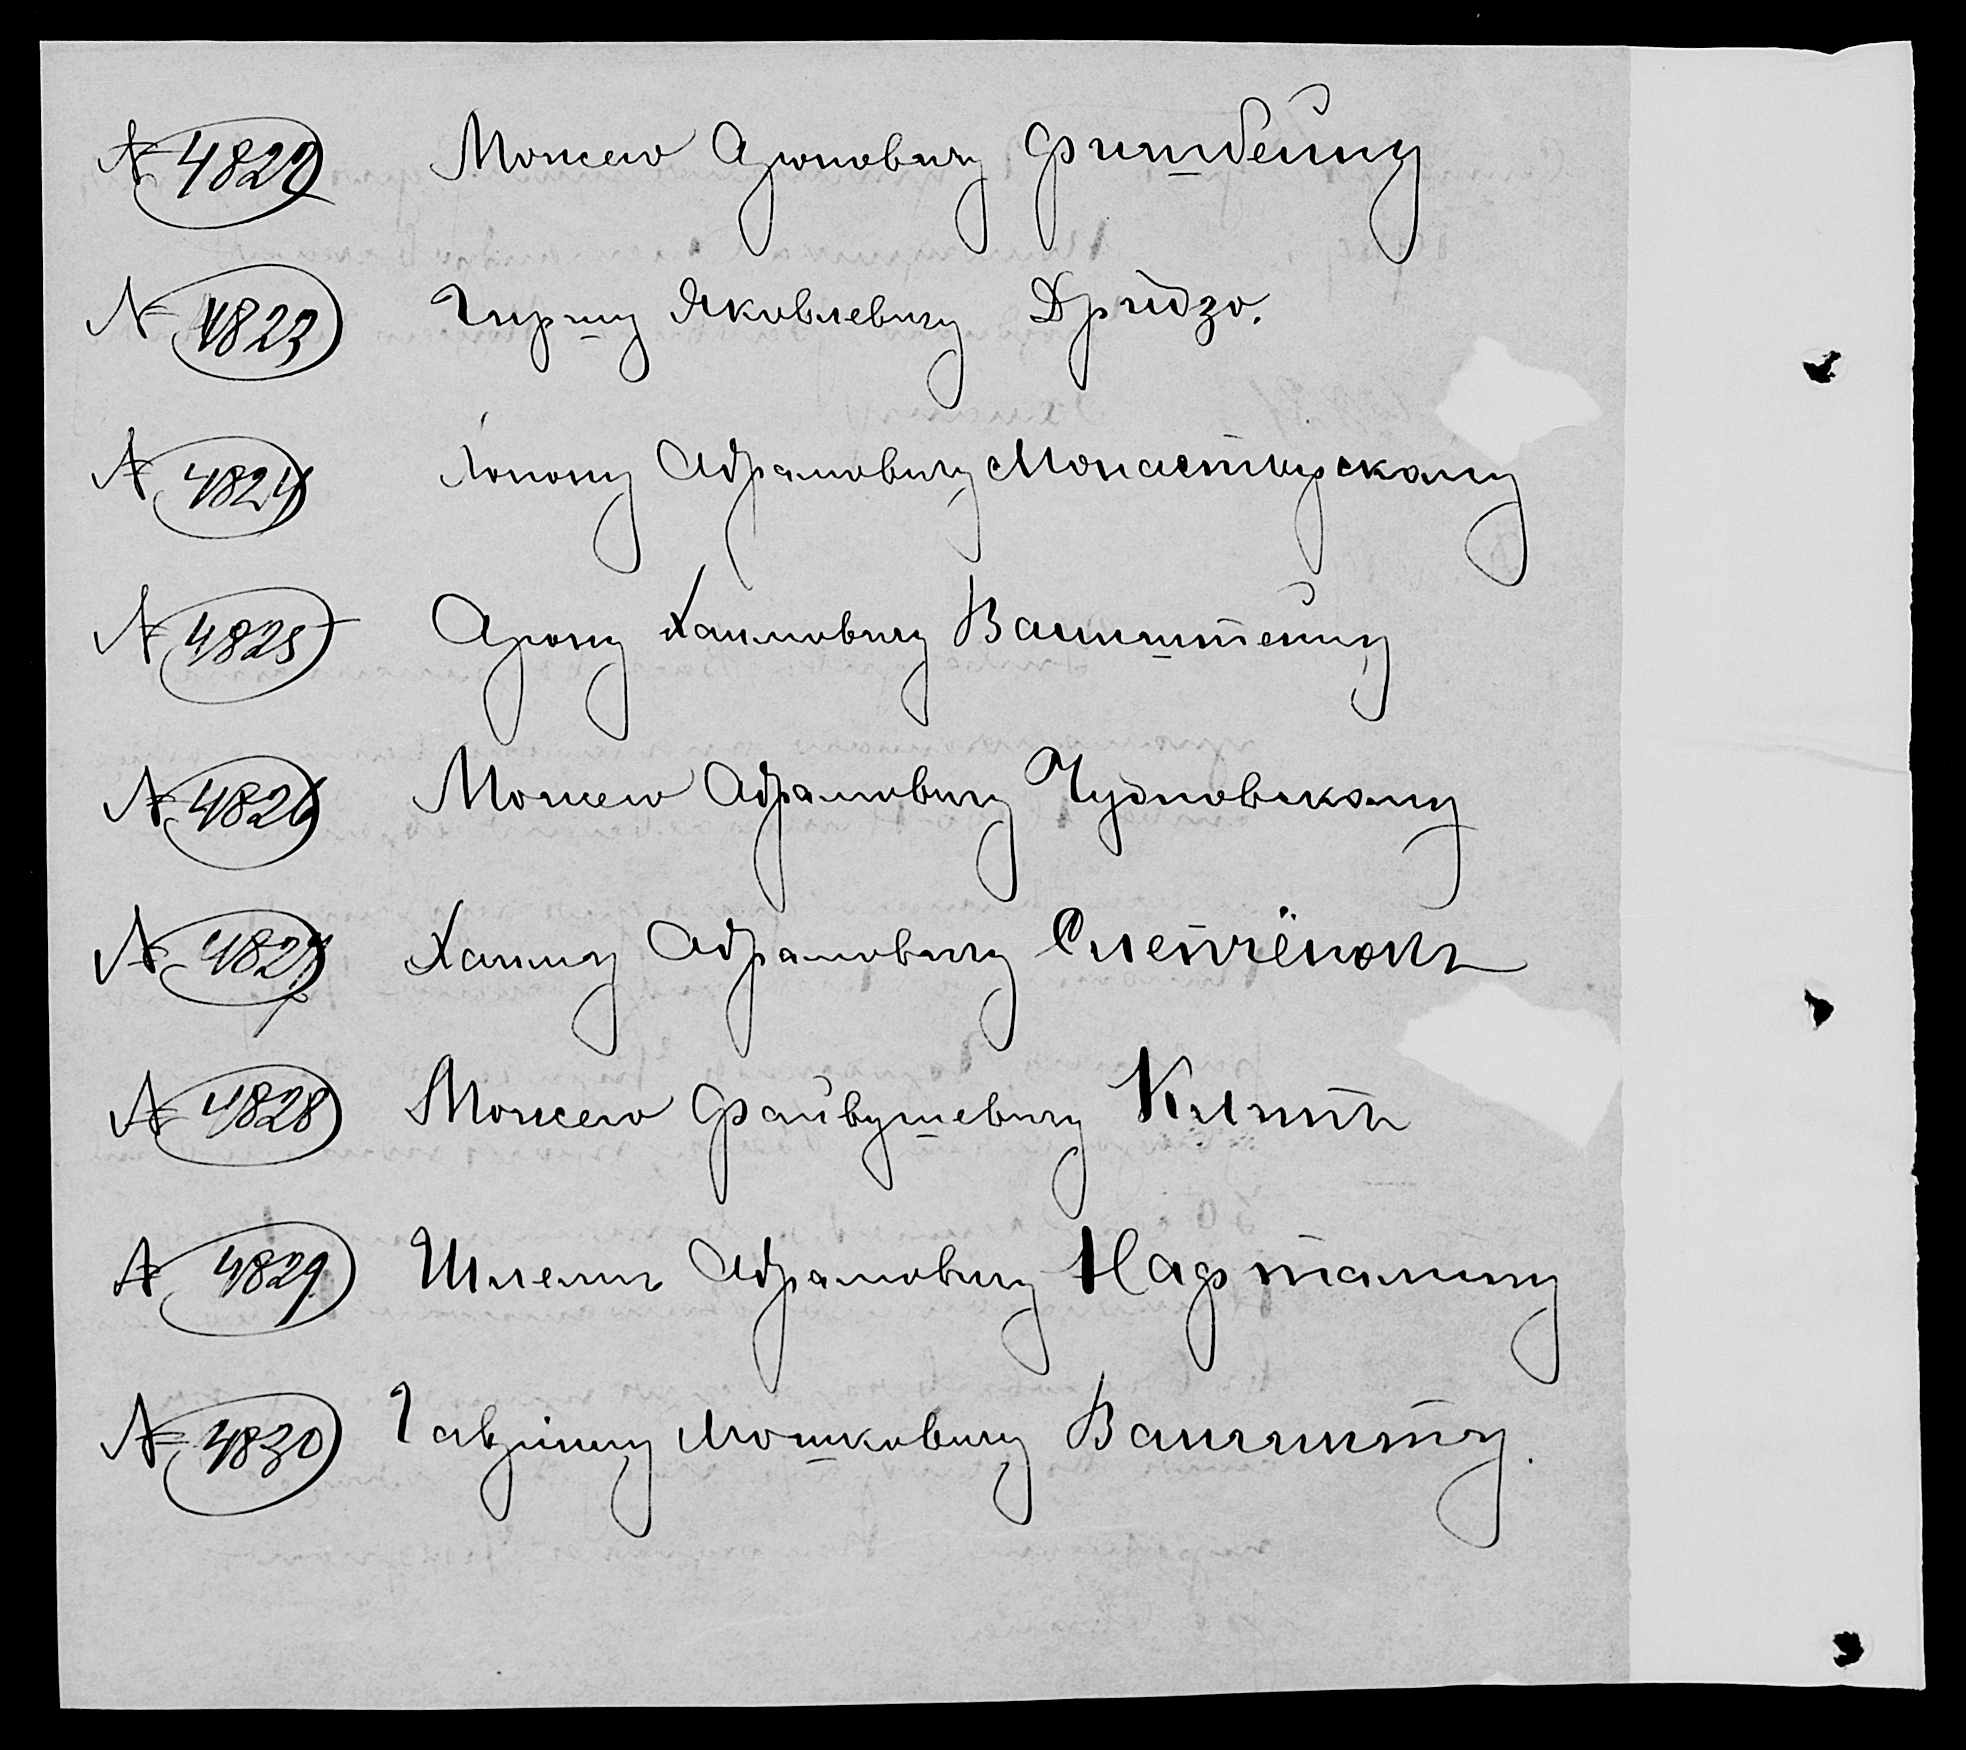 № 4822 Мошею Ароновичу Фишбейну
№ 4823 Гиршу Яковлевичу Дридзо.
№ 4824 Іопону Абрамовичу Монастырскому
№ 4825 Арону Хаимовичу Ваинштейну
№ 4826 Мошею Абрамовичу Чудновскому
№ 4827 Хаиму Абрамовичу Слепчёнокъ
№ 4828 Мошею Файвушевичу Килитъ
№ 4829 Шлемъ Абрамовичу Нафталину
№ 4830 Гавріилу Мошковичу